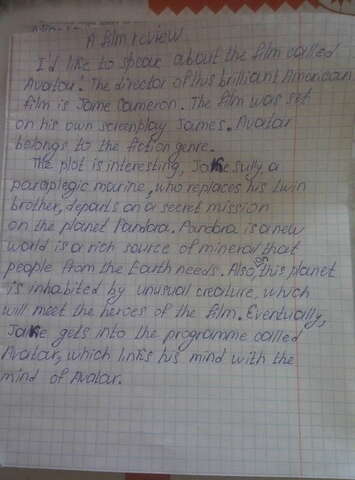 A film review
I'd like to speak about the film called
Avatar. The director of this brilliant American
film is Jame Cameron. The film was set
on his own screenplay James. Avatar
belongs to the fiction genre.
The plot is interesting, Jake sully a
paraplegic marine, who replaces his twin
brother, departs on a secret mission
on the planet Pandora. Pandora is a new
world is a rich source of mineral that
people from the Earth needs. Also, on this planet
is inhabited by unusual creature, which
will meet the heroes of the film. Eventually,
Jake gets into the programme called
Avatar, which links his mind with the
mind of Avatar.